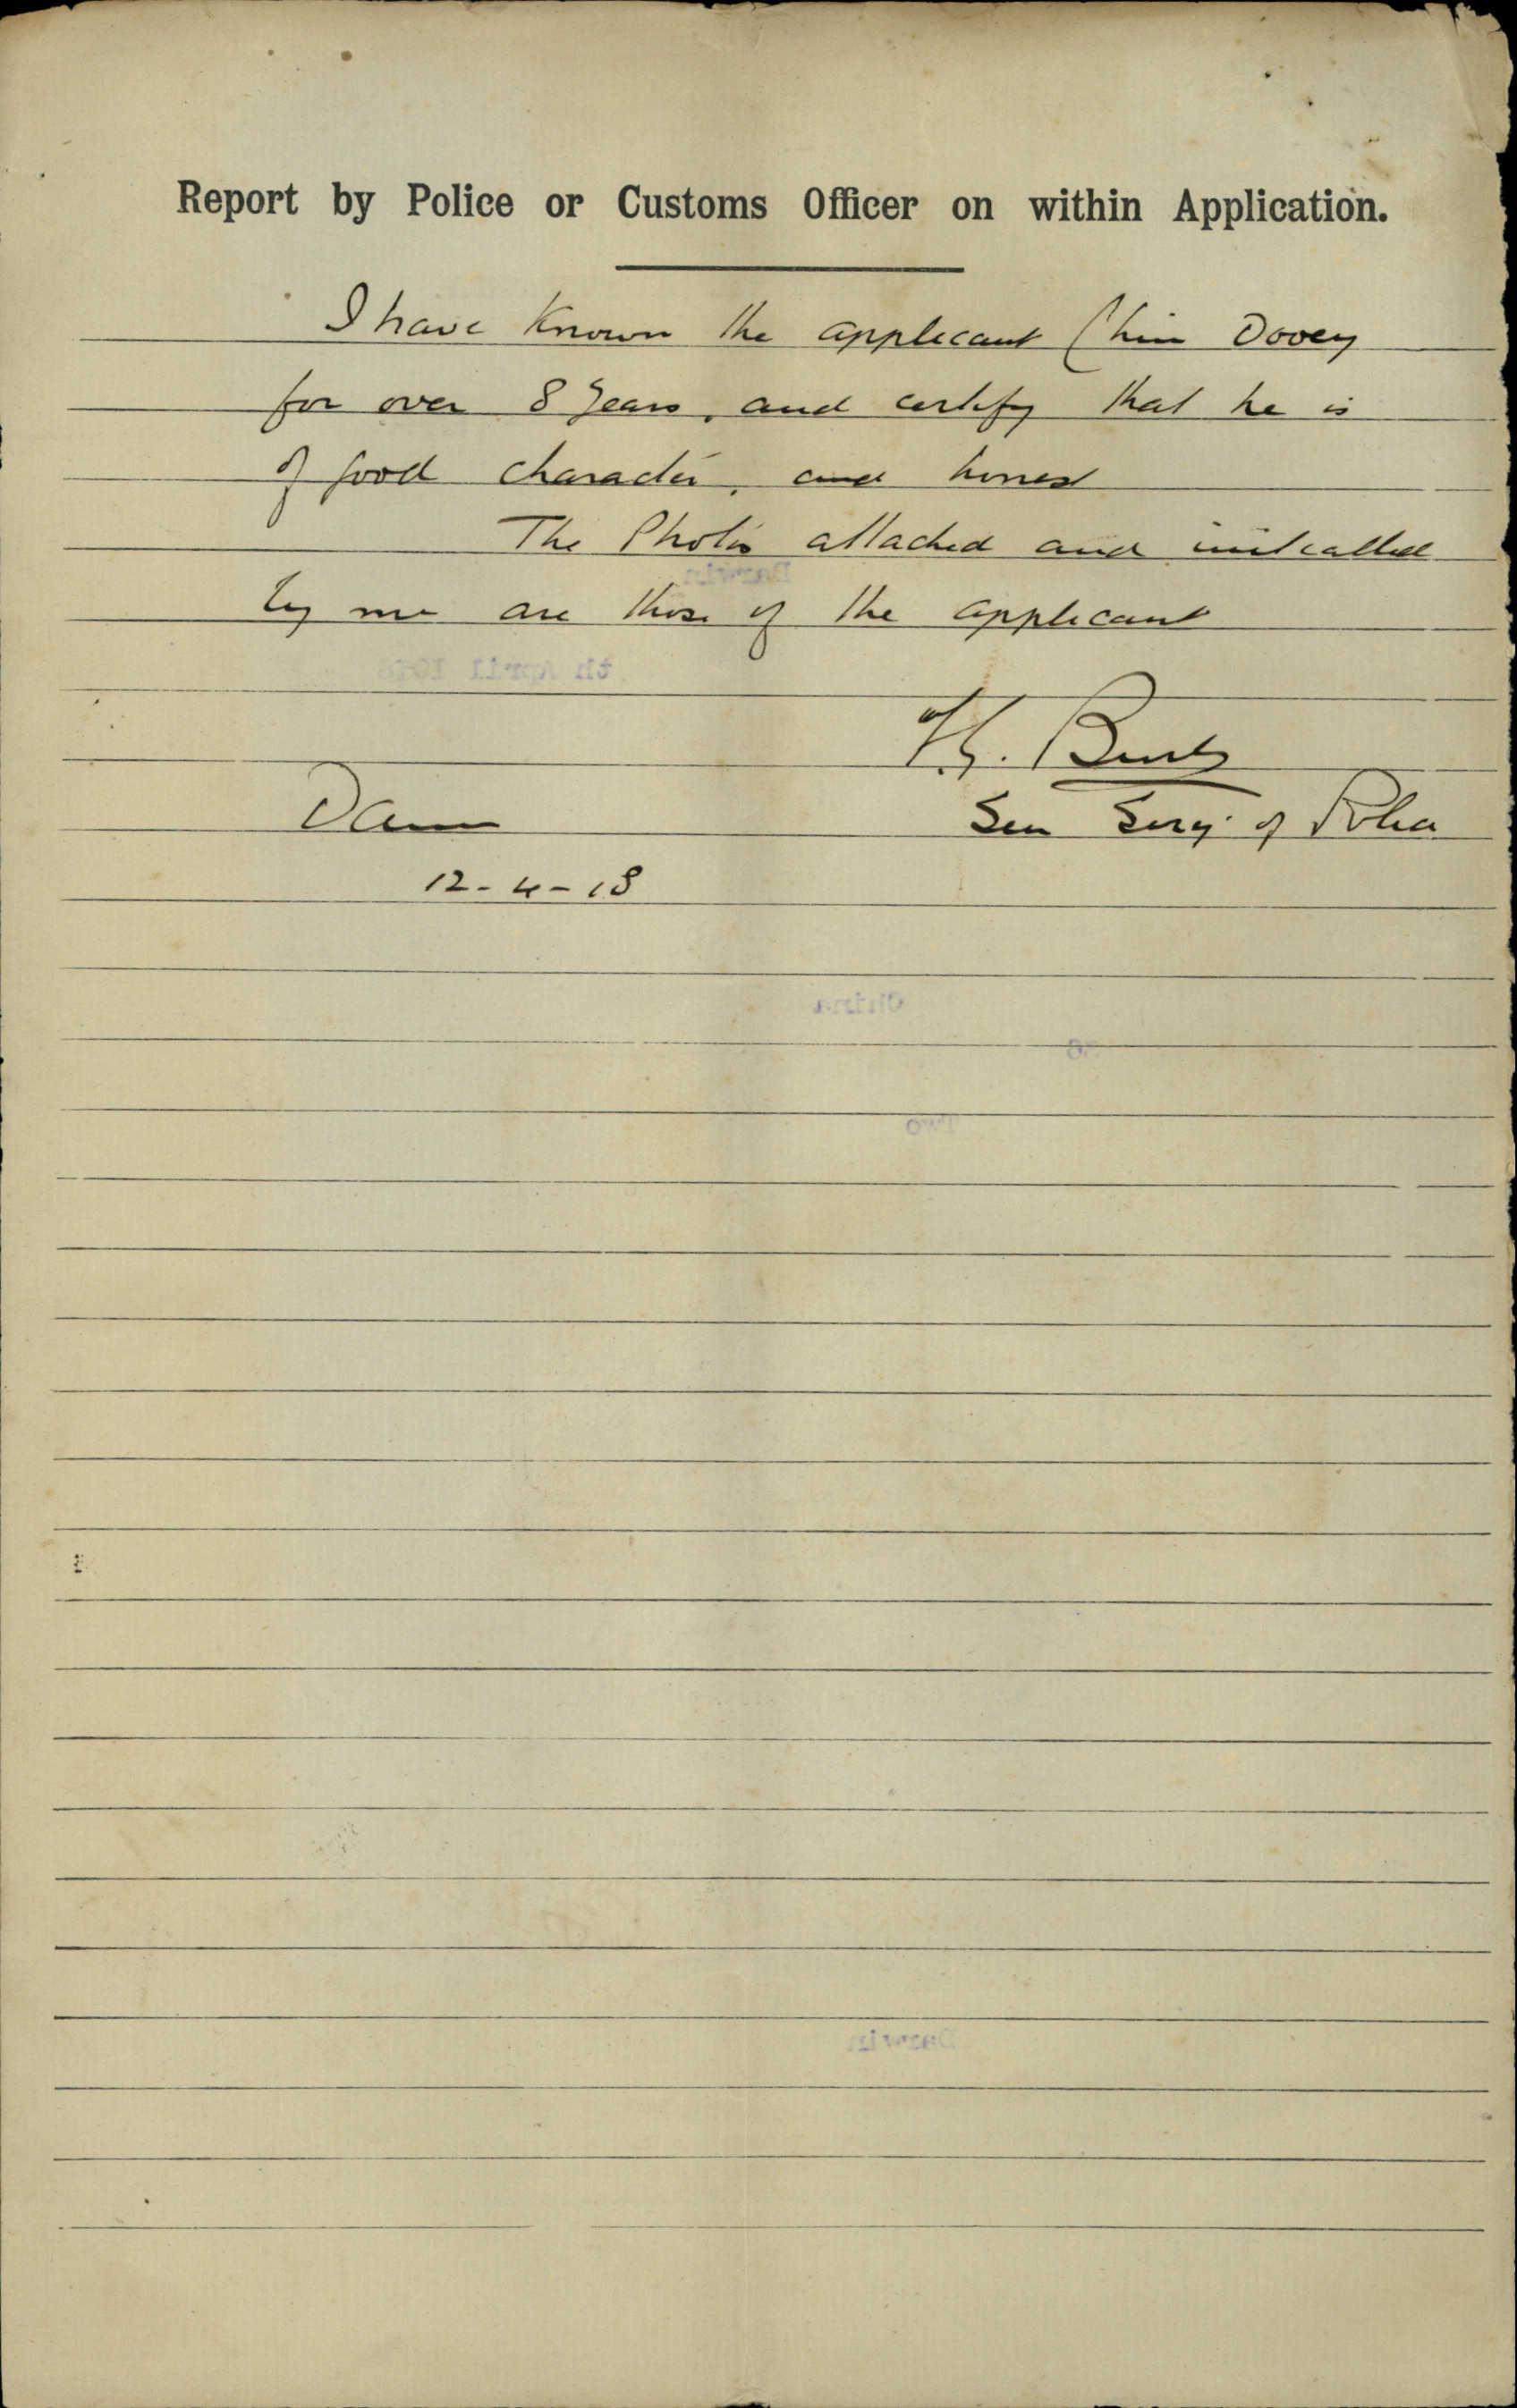 Report by Police or Customs Officer on within Application.
I have Known the applicant Chin Dooey
for over 8 years, and certify that he is
of good character, and honest
The Photos attached and initialled
by me are those of the applicant
Sen Sergt of Police
12-4-18